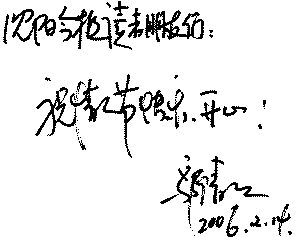 沈阳今报读者朋友们:
祝情人节快乐、开心!
2006.2.14.